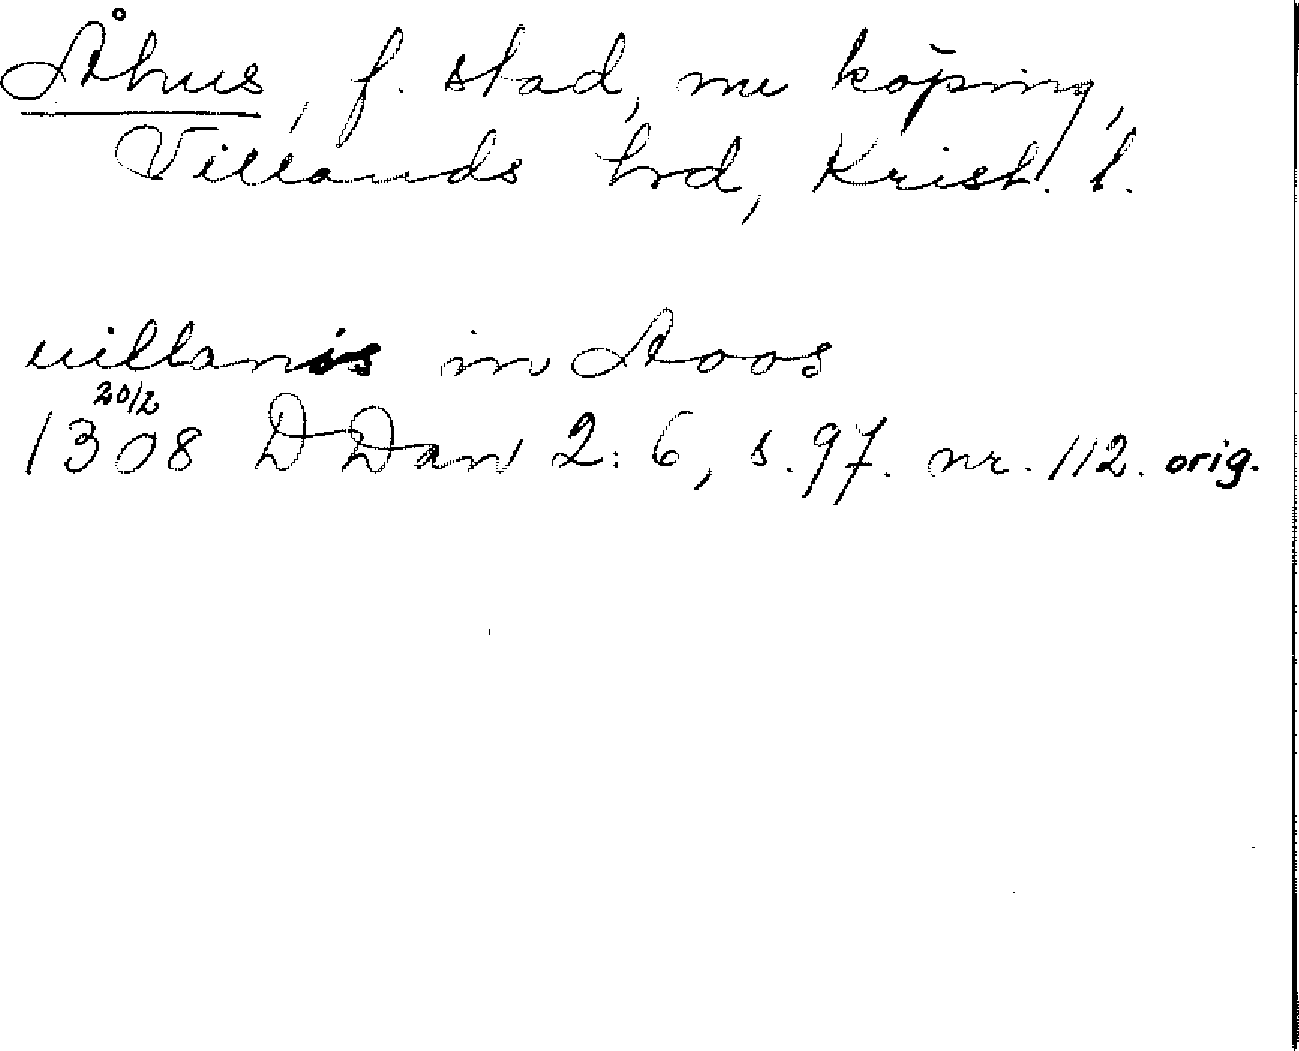 Åhus, f. stad, nu köping,
Villands hrd, Krist. l.
uillanis in Aoos
20/2
1308 DDan 2: 6, s. 97. nr. 112. orig.